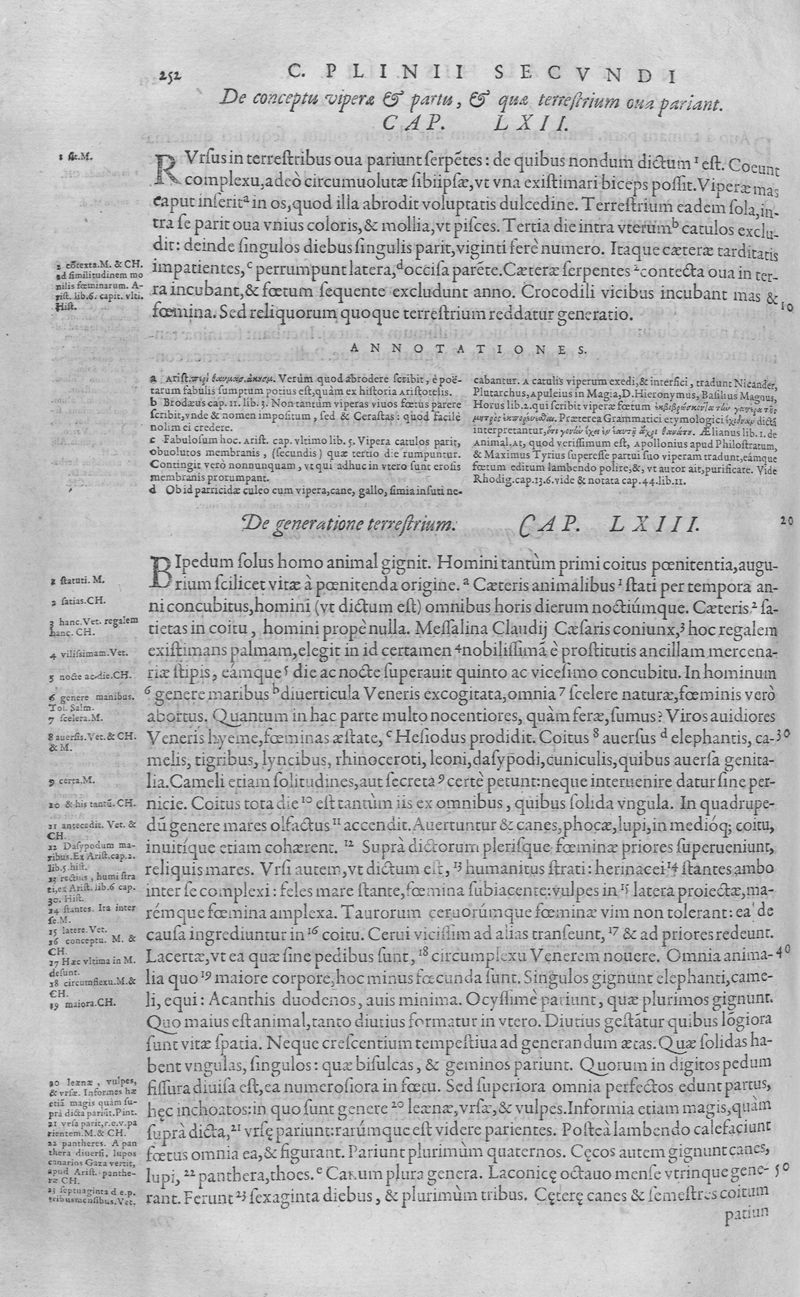 252
C. PLINII SECVNDI
De conceptu viperæ & partu, & quæ terrestrium oua pariant.
CAP. LXII.
1 sit.M.
RVrsus in terrestribus oua pariunt serpẽtes: de quibus nondum dictum¹ est. Coeunt
complexu, adeò circumuolutæ sibiipsæ, vt vna existimari biceps possit. Viperæ mas
caput inserit ᵃ in os, quod illa abrodit voluptatis dulcedine. Terrestrium eadem sola, in-
tra se parit oua vnius coloris, & mollia, vt pisces. Tertia die intra vterum ᵇ catulos exclu-
dit: deinde singulos diebus singulis parit, viginti ferè numero. Itaque cæteræ tarditatis
impatientes, ᶜ perrumpunt latera, ᵈ occisa parẽte. Cæteræ serpentes ² contecta oua in ter-
ra incubant, & fœtum sequente excludunt anno. Crocodili vicibus incubant mas &
fœmina. Sed reliquorum quoque terrestrium reddatur generatio.
10
2 cõtexta.M. & CH.
ad similitudinem mo
nilis fœminarum. A-
rist. lib.6. capit. vlti.
Hist.
ANNOTATIONES.
a Arist. περὶ θαυμασ. ἀκουσμ. Verùm quod abrodere scribit, è poë-
tarum fabulis sumptum potius est, quàm ex historia Aristotelis.
b Brodæus cap. 11. lib. 3. Non tantùm viperas viuos fœtus parere
scribit, vnde & nomen impositum, sed & Cerastas: quod facilè
nolim ei credere.
c Fabulosum hoc. Arist. cap. vltimo lib. 5. Vipera catulos parit,
obuolutos membranis, (secundis) quæ tertio die rumpuntur.
Contingit verò nonnunquam, vt qui adhuc in vtero sunt erosis
membranis prorumpant.
d Ob id parricidæ culeo cum vipera, cane, gallo, simia insuti ne-
cabantur. A catulis viperum exedi, & interfici, tradunt Nicander,
Plutarchus, Apuleius in Magia, D. Hieronymus, Basilius Magnus,
Horus lib.2. qui scribit viperæ fœtum
Præterea Grammatici etymologici dictã
interpretantur, Ælianus lib.1. de
Animal. At, quod verissimum est, Apollonius apud Philostratum,
& Maximus Tyrius superesse partui suo viperam tradunt, eámque
fœtum editum lambendo polire, &, vt autor ait, purificare. Vide
Rhodig. cap.13.6. vide & notata cap.44. lib.11.
De generatione terrestrium. CAP. LXIII.
20
BIpedum solus homo animal gignit. Homini tantùm primi coitus pœnitentia, augu-
rium scilicet vitæ à pœnitenda origine. ᵃ Cæteris animalibus ¹ stati per tempora an-
ni concubitus, homini (vt dictum est) omnibus horis dierum noctiúmque. Cæteris ² sa-
tietas in coitu, homini propè nulla. Messalina Claudij Cæsaris coniunx, ³ hoc regalem
existimans palmam, elegit in id certamen ⁴ nobilissimã è prostitutis ancillam mercena-
riæ stipis, eámque ⁵ die ac nocte superauit quinto ac vicesimo concubitu. In hominum
⁶ genere maribus ᵇ diuerticula Veneris excogitata, omnia ⁷ scelere naturæ, fœminis verò
abortus. Quantum in hac parte multo nocentiores, quàm feræ, sumus? Viros auidiores
Veneris hyeme, fœminas æstate, ᶜ Hesiodus prodidit. Coitus ⁸ auersus ᵈ elephantis, ca-
melis, tigribus, lyncibus, rhinoceroti, leoni, dasypodi, cuniculis, quibus auersa genita-
lia. Cameli etiam solitudines, aut secreta ⁹ certè petunt: neque interuenire datur sine per-
nicie. Coitus tota die ¹⁰ est tantùm iis ex omnibus, quibus solida vngula. In quadrupe-
dũ genere mares olfactus ¹¹ accendit. Auertuntur & canes, phocæ, lupi, in medióq; coitu,
inuitique etiam cohærent. ¹² Suprà dictorum plerisque fœminæ priores superueniunt,
reliquis mares. Vrsi autem, vt dictum est, ¹³ humanitus strati: herinacei ¹⁴ stantes ambo
inter se complexi: feles mare stante, fœmina subiacente: vulpes in ¹⁵ latera proiectæ, ma-
rémque fœmina amplexa. Taurorum ceruorúmque fœminæ vim non tolerant: ea de
causa ingrediuntur in ¹⁶ coitu. Cerui vicissim ad alias transeunt, ¹⁷ & ad priores redeunt.
Lacertæ, vt ea quæ sine pedibus sunt, ¹⁸ circumplexu Venerem nouere. Omnia anima-
lia quo ¹⁹ maiore corpore, hoc minus fœcunda sunt. Singulos gignunt elephanti, came-
li, equi: Acanthis duodenos, auis minima. Ocyssimè pariunt, quæ plurimos gignunt.
Quo maius est animal, tanto diutius formatur in vtero. Diutius gestãtur quibus lõgiora
sunt vitæ spatia. Neque crescentium tempestiua ad generandum ætas. Quæ solidas ha-
bent vngulas, singulos: quæ bisulcas, & geminos pariunt. Quorum in digitos pedum
fissura diuisa est, ea numerosiora in fœtu. Sed superiora omnia perfectos edunt partus,
hęc inchoatos: in quo sunt genere ²⁰ leænæ, vrsæ, & vulpes. Informia etiam magis, quàm
suprà dicta, ²¹ vrsę pariunt: rarúmque est videre parientes. Posteà lambendo calefaciunt
fœtus omnia ea, & figurant. Pariunt plurimùm quaternos. Cęcos autem gignunt canes,
lupi, ²² panthera, thoes. ᵉ Canum plura genera. Laconicę octauo mense vtrinque gene-
rant. Ferunt ²³ sexaginta diebus, & plurimùm tribus. Cęterę canes & semestres coitum
patiun
30
40
50
1 statuti. M.
2 satias.CH.
3 hanc.Vet. regalem
hanc. CH.
4 vilissimam.Vet.
5 nocte ac die.CH.
6 genere manibus.
Tol. Salm.
7 scelera.M.
8 auersis.Vet.& CH.
& M.
9 certa.M.
10 & his tantũ. CH.
11 antecedit. Vet. &
CH.
12 Dasypodum ma-
ribus. Ex Arist.cap.2.
lib.5.hist.
13 rectius, humi stra
ti, ex Arist. lib.6 cap.
30. Hist.
14 stantes. Ita inter
se.M.
15 latere.Vet.
16 conceptu. M. &
CH.
17 Hæc vltima in M.
desunt.
18 circumflexu.M.&
CH.
19 maiora.CH.
20 leænæ, vulpes,
& vrsæ. Informes hæ
etiã magis quàm su-
prà dicta pariũt.Pint.
21 vrsa parit, r.e.v.pa
rientem.M.& CH.
22 pantheres. A pan
thera diuersi, lupos
canarios Gaza vertit,
apud Arist. panthe-
ræ CH.
23 septuaginta d e.p.
tribus mensibus.Vet.